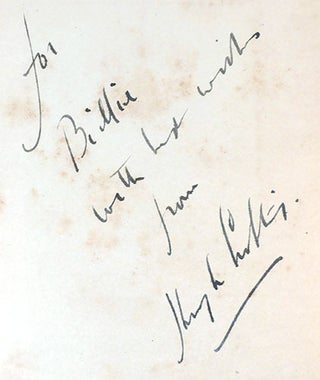 for
Billie
with best wishes
from
Hugh